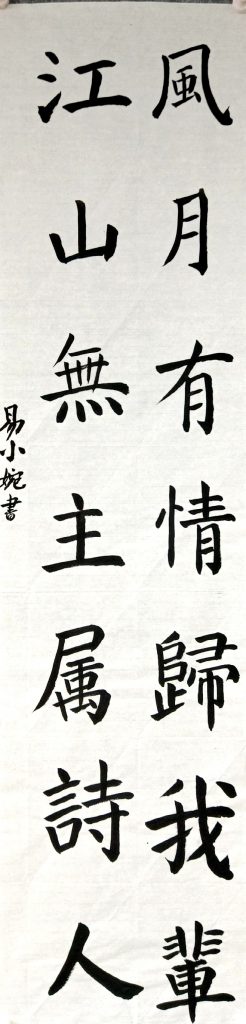 風月有情歸我輩
江山無主属詩人
易小婉書